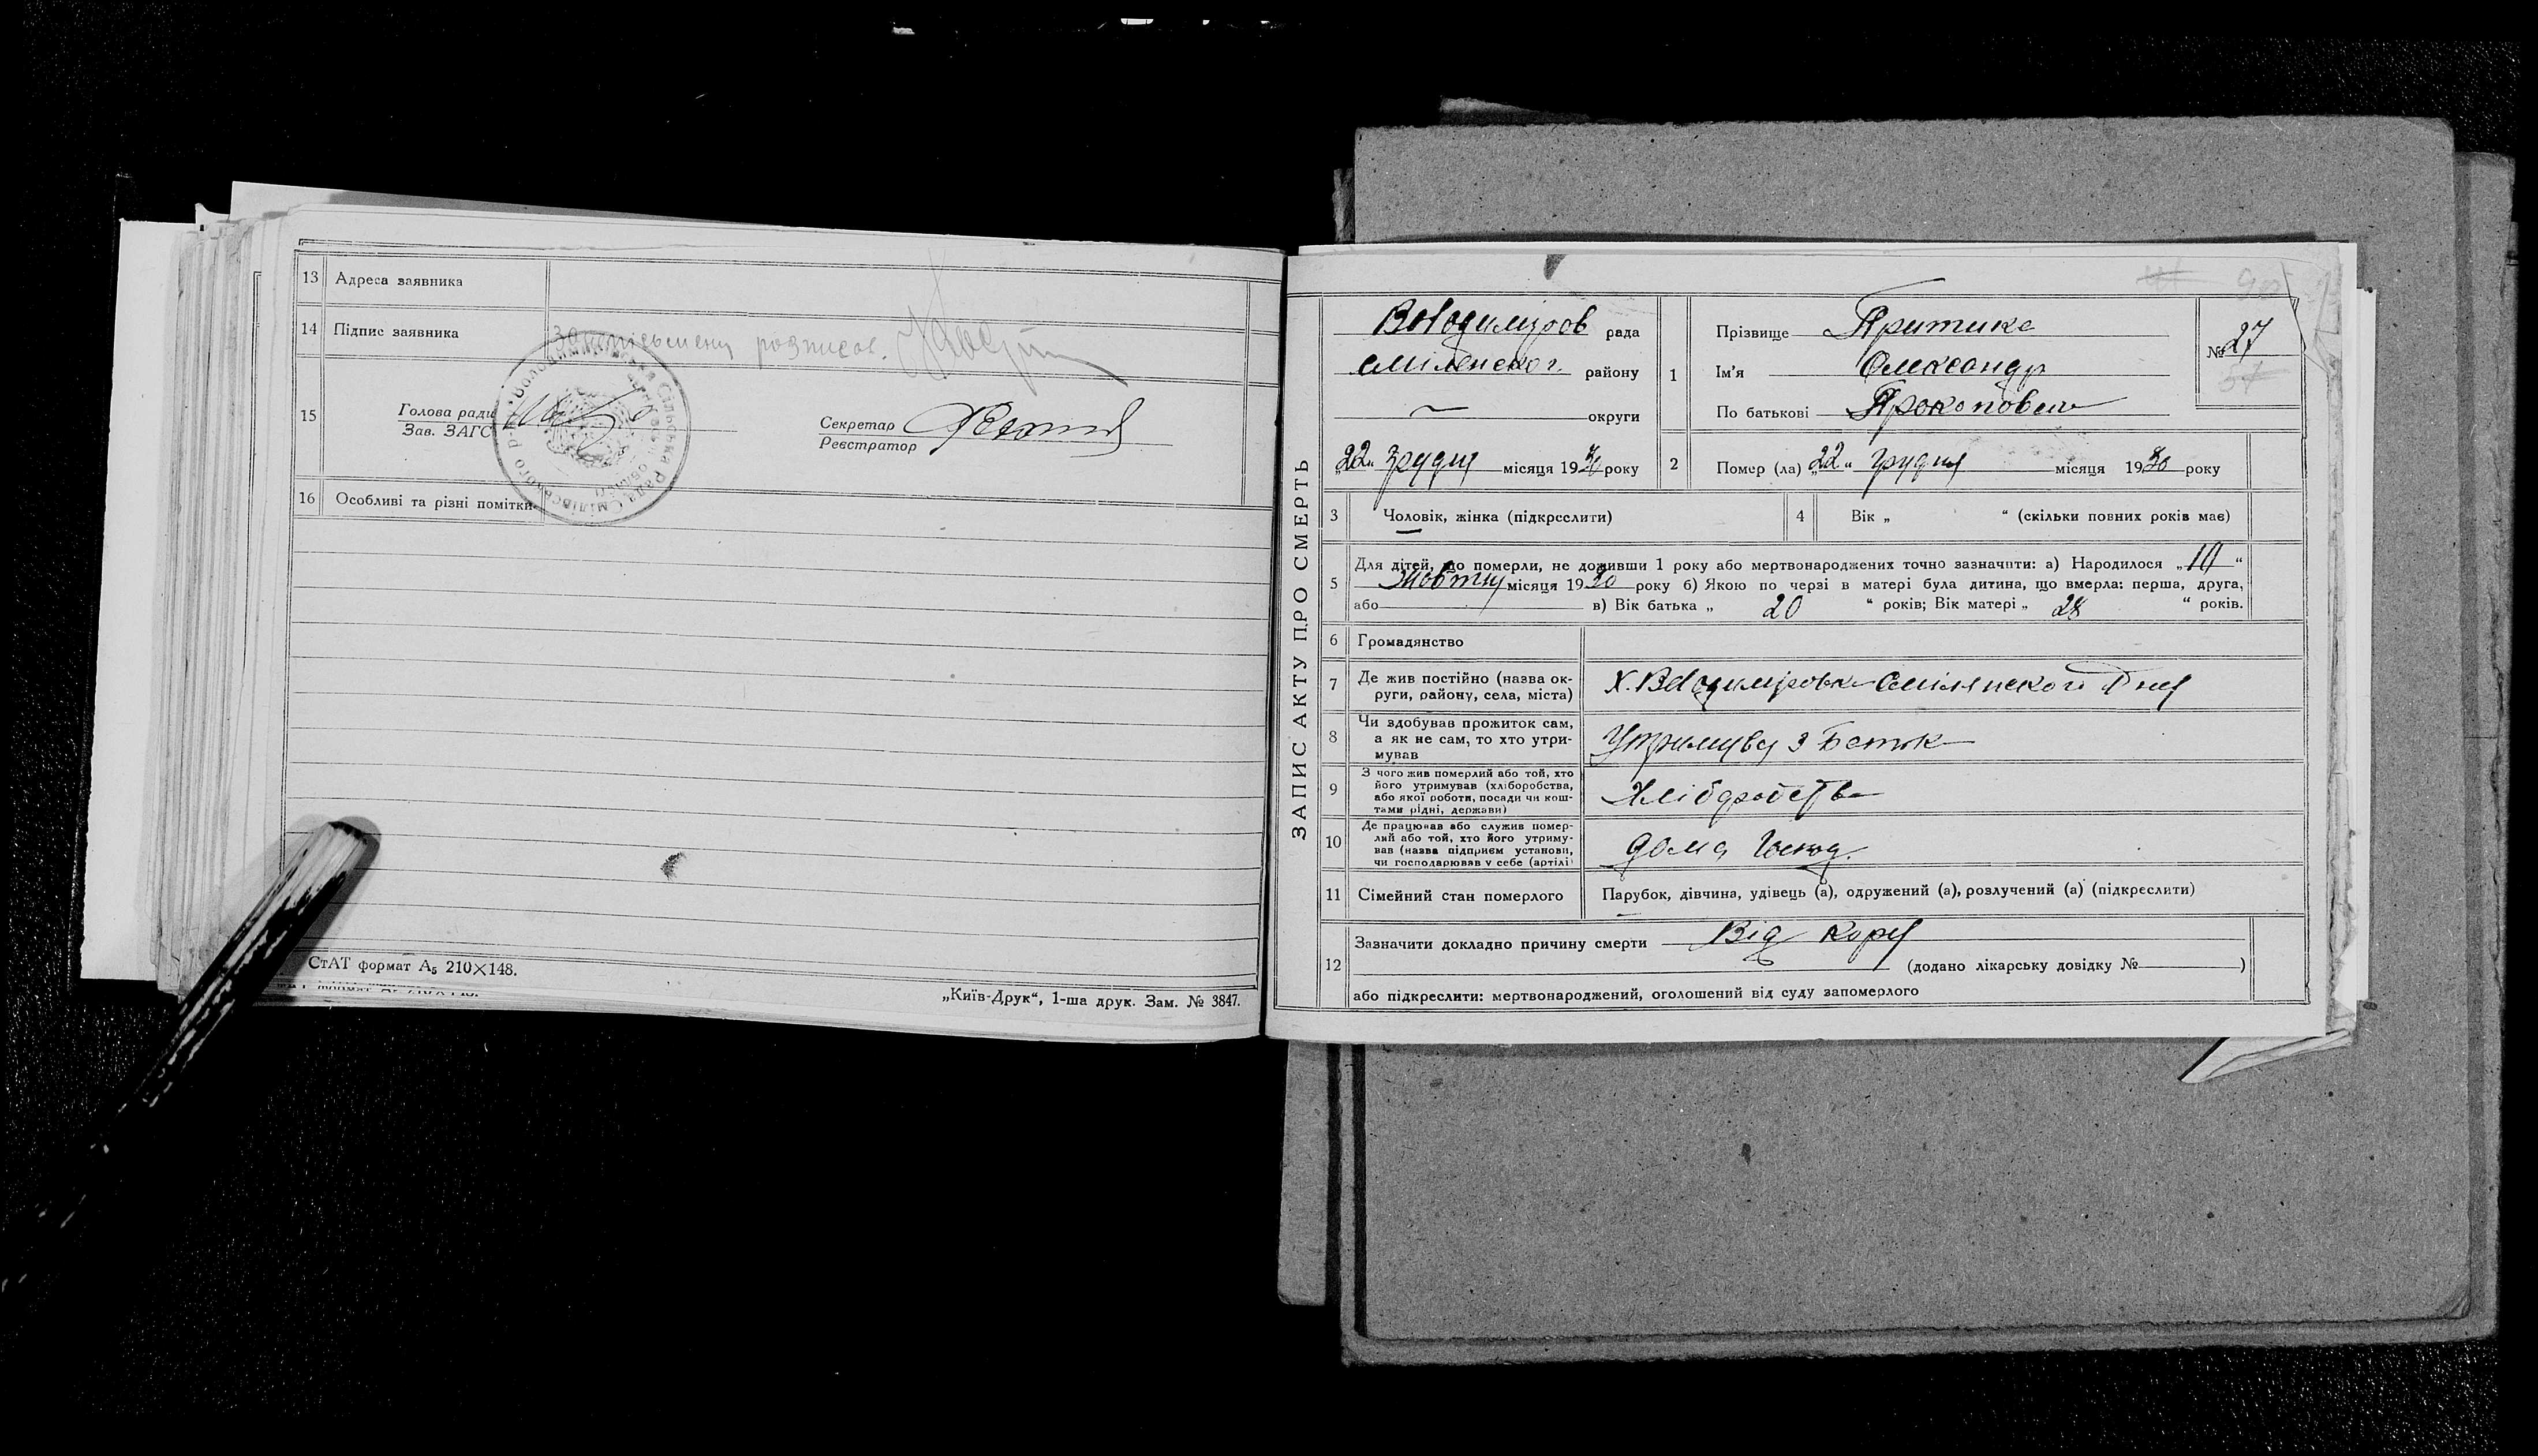 13 Адреса заявника
14 Підпис заявника За неписьмен розписав.
15 Голова ради
Зав. ЗАГС
Секретар
Реєстратор
16 Особливі та різні помітки
СтАТ формат А₅ 210×148.
„Київ-Друк“, 1-ша друк. Зам. № 3847.
ЗАПИС АКТУ ПРО СМЕРТЬ
Володиміров рада
Смілянског району
округи
„22“ грудня місяця 1930 року
1 Прізвище Притика
Ім'я Олександр
По батькові Прокопович
№ 27
2 Помер (ла) „22“ грудня місяця 1930 року
3 Чоловік, жінка (підкреслити)
4 Вік „ “ (скільки повних років має)
5 Для дітей, що померли, не доживши 1 року або мертвонароджених точно зазначити: а) Народилося „10“
жовтня місяця 1930 року б) Якою по черзі в матері була дитина, що вмерла: перша, друга,
або в) Вік батька „ 20 “ років; Вік матері „ 28 “ років.
6 Громадянство
7 Де жив постійно (назва ок-
руги, району, села, міста) Х. Володиміровка Смілянског
8 Чи здобував прожиток сам,
а як не сам, то хто утри-
мував Утримував Батьк
9 З чого жив померлий або той, хто
його утримував (хліборобства,
або якої роботи, посади чи кош-
тами рідні, держави) Хліборобства
10 Де працював або служив помер-
лий або той, хто його утриму-
вав (назва підприєм установи,
чи господарював у себе (артілі) дома Господ.
11 Сімейний стан померлого Парубок, дівчина, удівець (а), одружений (а), розлучений (а) (підкреслити)
12 Зазначити докладно причину смерти Від кору
(додано лікарську довідку № )
або підкреслити: мертвонароджений, оголошений від суду запомерлого